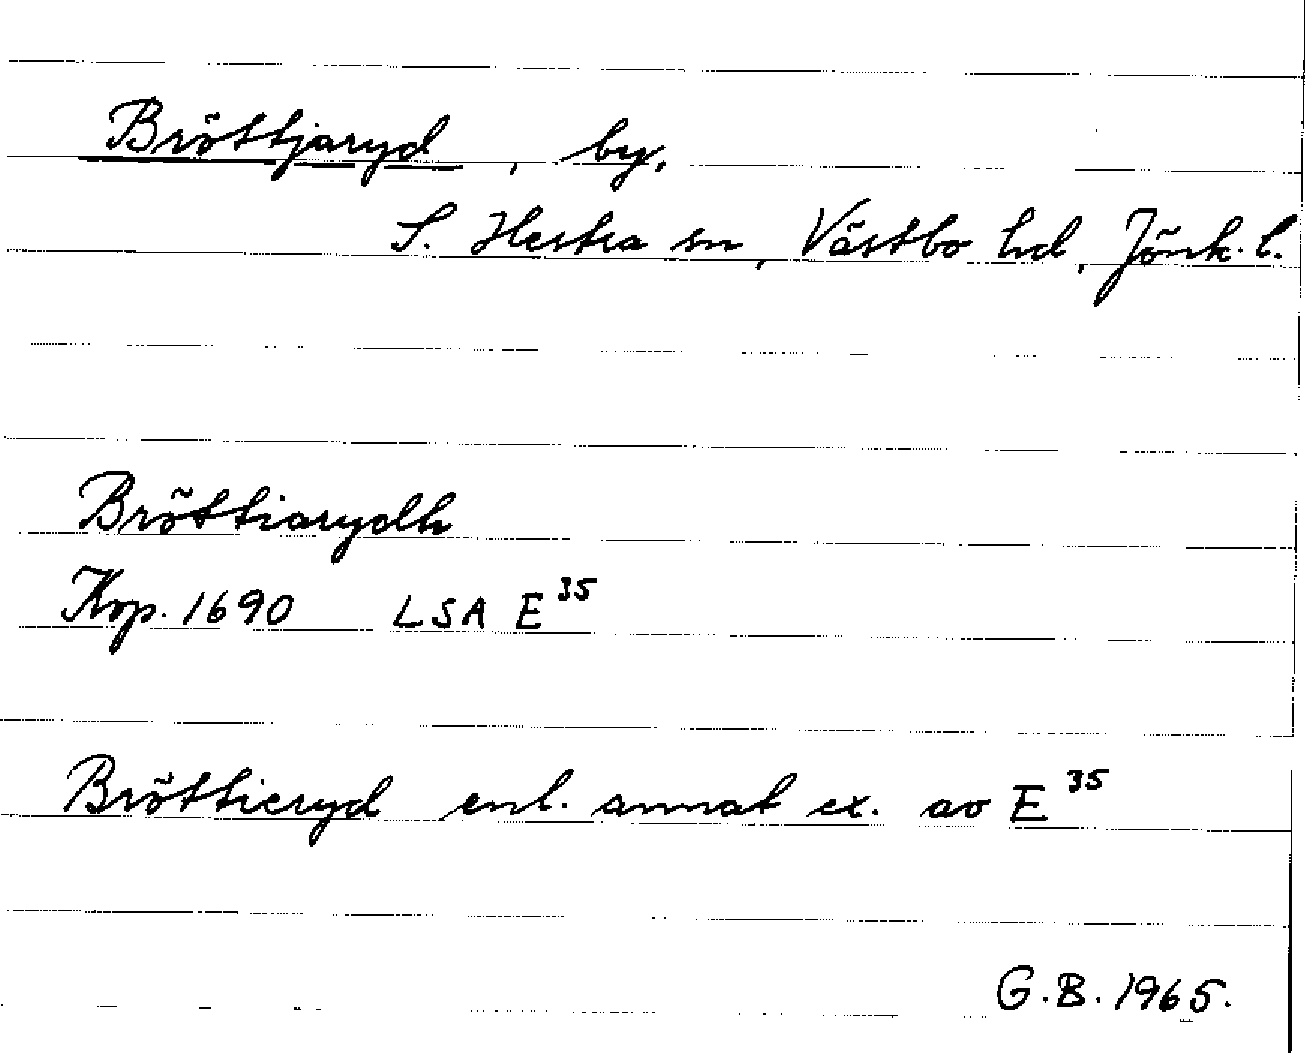 Bröttjaryd, by,
S. Hestra sn, Västbo hd, Jönk. l.
Bröttiarydh
Kop. 1690 LSA E³⁵
Bröttieryd enl. annat ex. av E³⁵
G.B. 1965.